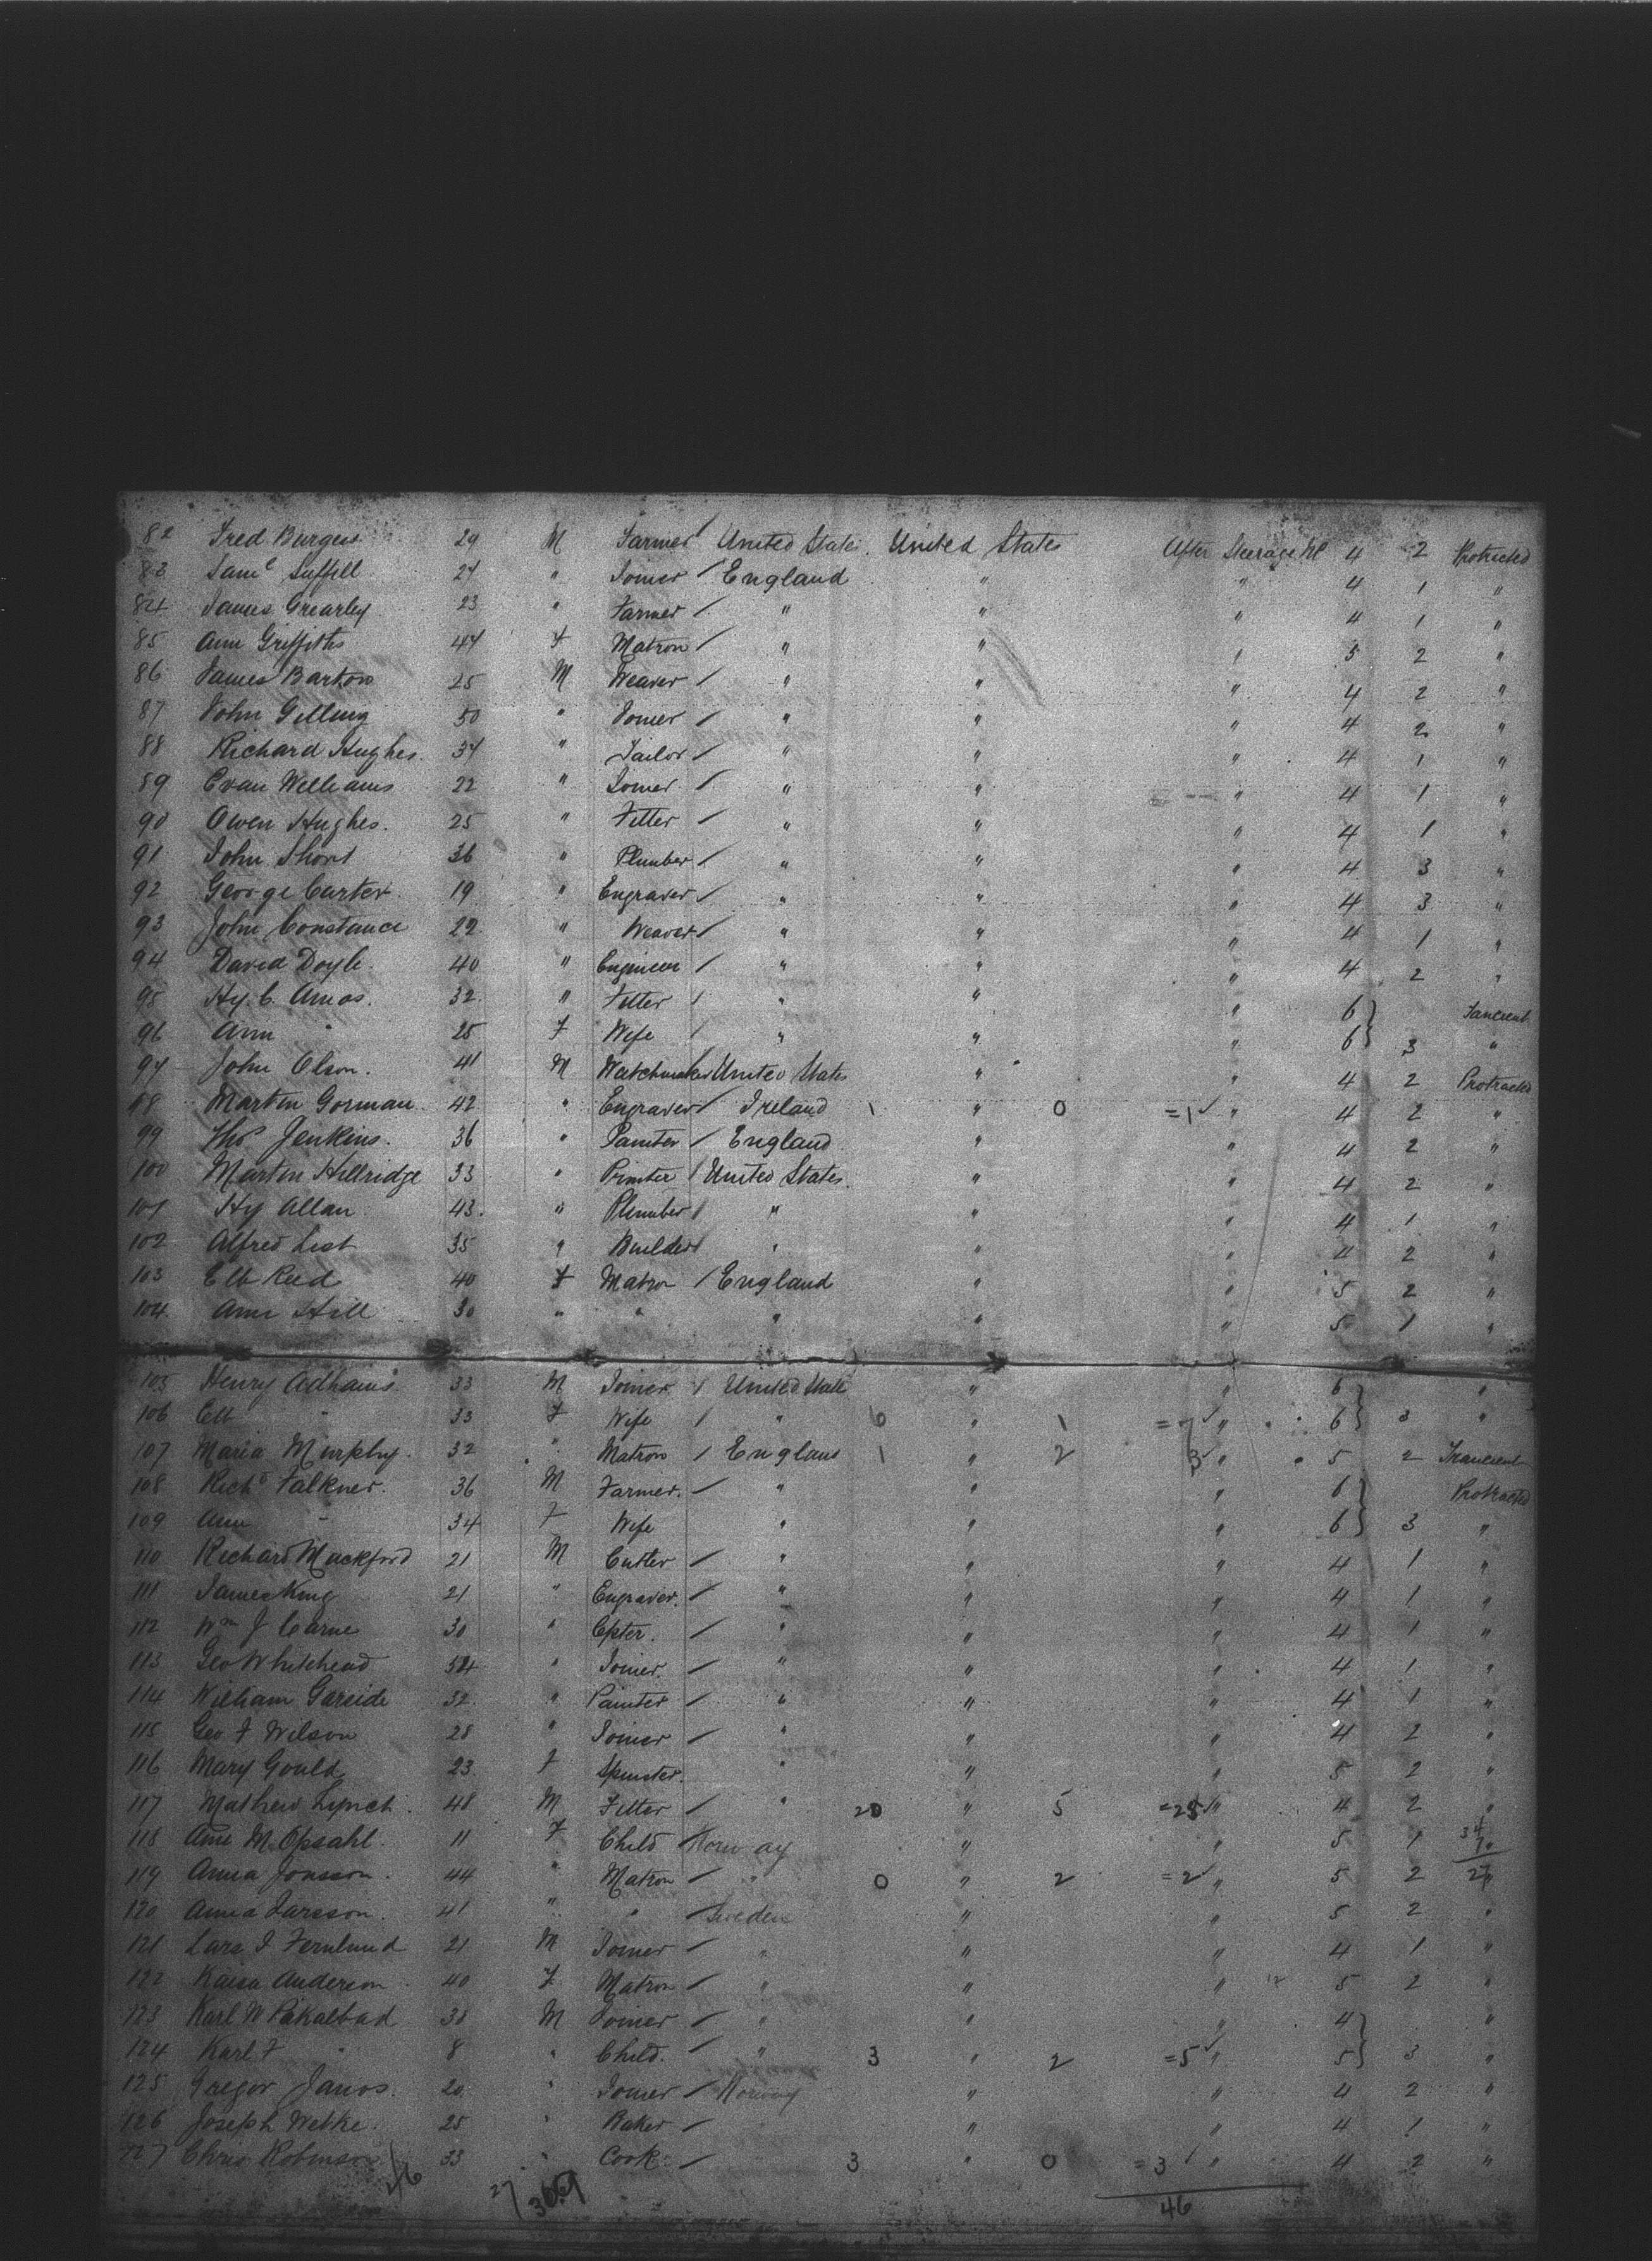 82 Fred Burgess 29 M Farmer / United States United States After Steerage 4 2 Protracted
83 Saml Suffell 24 " Joiner / England " " 4 1 "
84 James Grearley 23 " Farmer / " " " 4 1 "
85 Ann Griffiths 44 F Matron / " " " 5 2 "
86 James Barton 25 M Weaver / " " " 4 2 "
87 John Gilling 50 " Joiner / " " " 4 2 "
88 Richard Hughes. 34 " Tailor / " " " 4 1 "
89 Evan Williams 22 " Joiner / " " " 4 1 "
90 Owen Hughes. 25 " Fitter / " " " 4 1 "
91 John Short 36 " Plumber / " " " 4 3 "
92 George Carter. 19 " Engraver / " " " 4 3 "
93 John Constance 22 " Weaver / " " " 4 1 "
94 David Doyle. 40 " Engineer / " " " 4 2 "
95 Hy. C. Amos. 32 " Fitter / " " " 6
96 Ann " 25 F Wife / " " " 6 3 "
97 John Olson. 41 M Watchmaker United States " " 4 2 Protracted
98 Martin Gorman. 42 " Engraver / Ireland 1 " 0 =1 ✓ " 4 2 "
99 Thos Jenkins. 36 " Painter / England " " 4 2 "
100 Martin Hillridge 33 " Printer / United States. " " 4 2 "
101 Hy Allan 43. " Plumber / " " " 4 1 "
102 Alfred List 35 " Builder / " " " 4 2 "
103 Elb Reed 40 F Matron / England " " 5 2 "
104 Ann Hill 30 " " " " " 5 1 "
105 Henry Adhams 33 M Joiner / United State " " 6 "
106 Elb " 33 F Wife / " 6 " 1 =7 ✓ " 6 3 "
107 Maria Murphy. 32 " Matron / England 1 " 2 3 ✓ " 5 2
108 Richd Falkner. 36 M Farmer. / " " " 6 Protracted
109 Ann " 34 F Wife " " " 6 3 "
110 Richard Mackford 21 M Cutler / " " " 4 1 "
111 James King 21 " Engraver. / " " " 4 1 "
112 Wm J Carne 30 " / " " " 4 1 "
113 Geo Whitehead " Joiner. / " " " 4 1 "
114 William Garside 32 " Painter / " " " 4 1 "
115 Geo F Wilson 28 " Joiner / " " " 4 2 "
116 Mary Gould 23 F Spinster. " " " 5 2 "
117 Mathew Lynch. 48 M Fitter / " 20 " 5 =25 ✓ " 4 2 "
118 Ane M. Opsahl. 11 F Child / Norway " " 5 1 34
119 Anna Jonsson. 44 " Matron / " 0 " 2 =2 ✓ " 5 2 27
120 Anna Larsson. 41 " " / Sweden " " 5 2 "
121 Lars J Fernlund 21 M Joiner / " " " 4 1 "
122 Kaisa Anderson. 40 F Matron / " " " 12 5 2 "
123 Karl W 30 M Joiner / " " " 4 "
124 Karl F " 8 " Child. / " 3 " 2 =5 ✓ " 5 3 "
125 Gregor Janos. 20 " Joiner / Norway " " 4 2 "
126 Joseph Wetke. 25 " Baker / " " 4 1 "
127 Chris Robinson 33 " Cook. / 3 " 0 =3 ✓ " 4 2 "
46 27 46